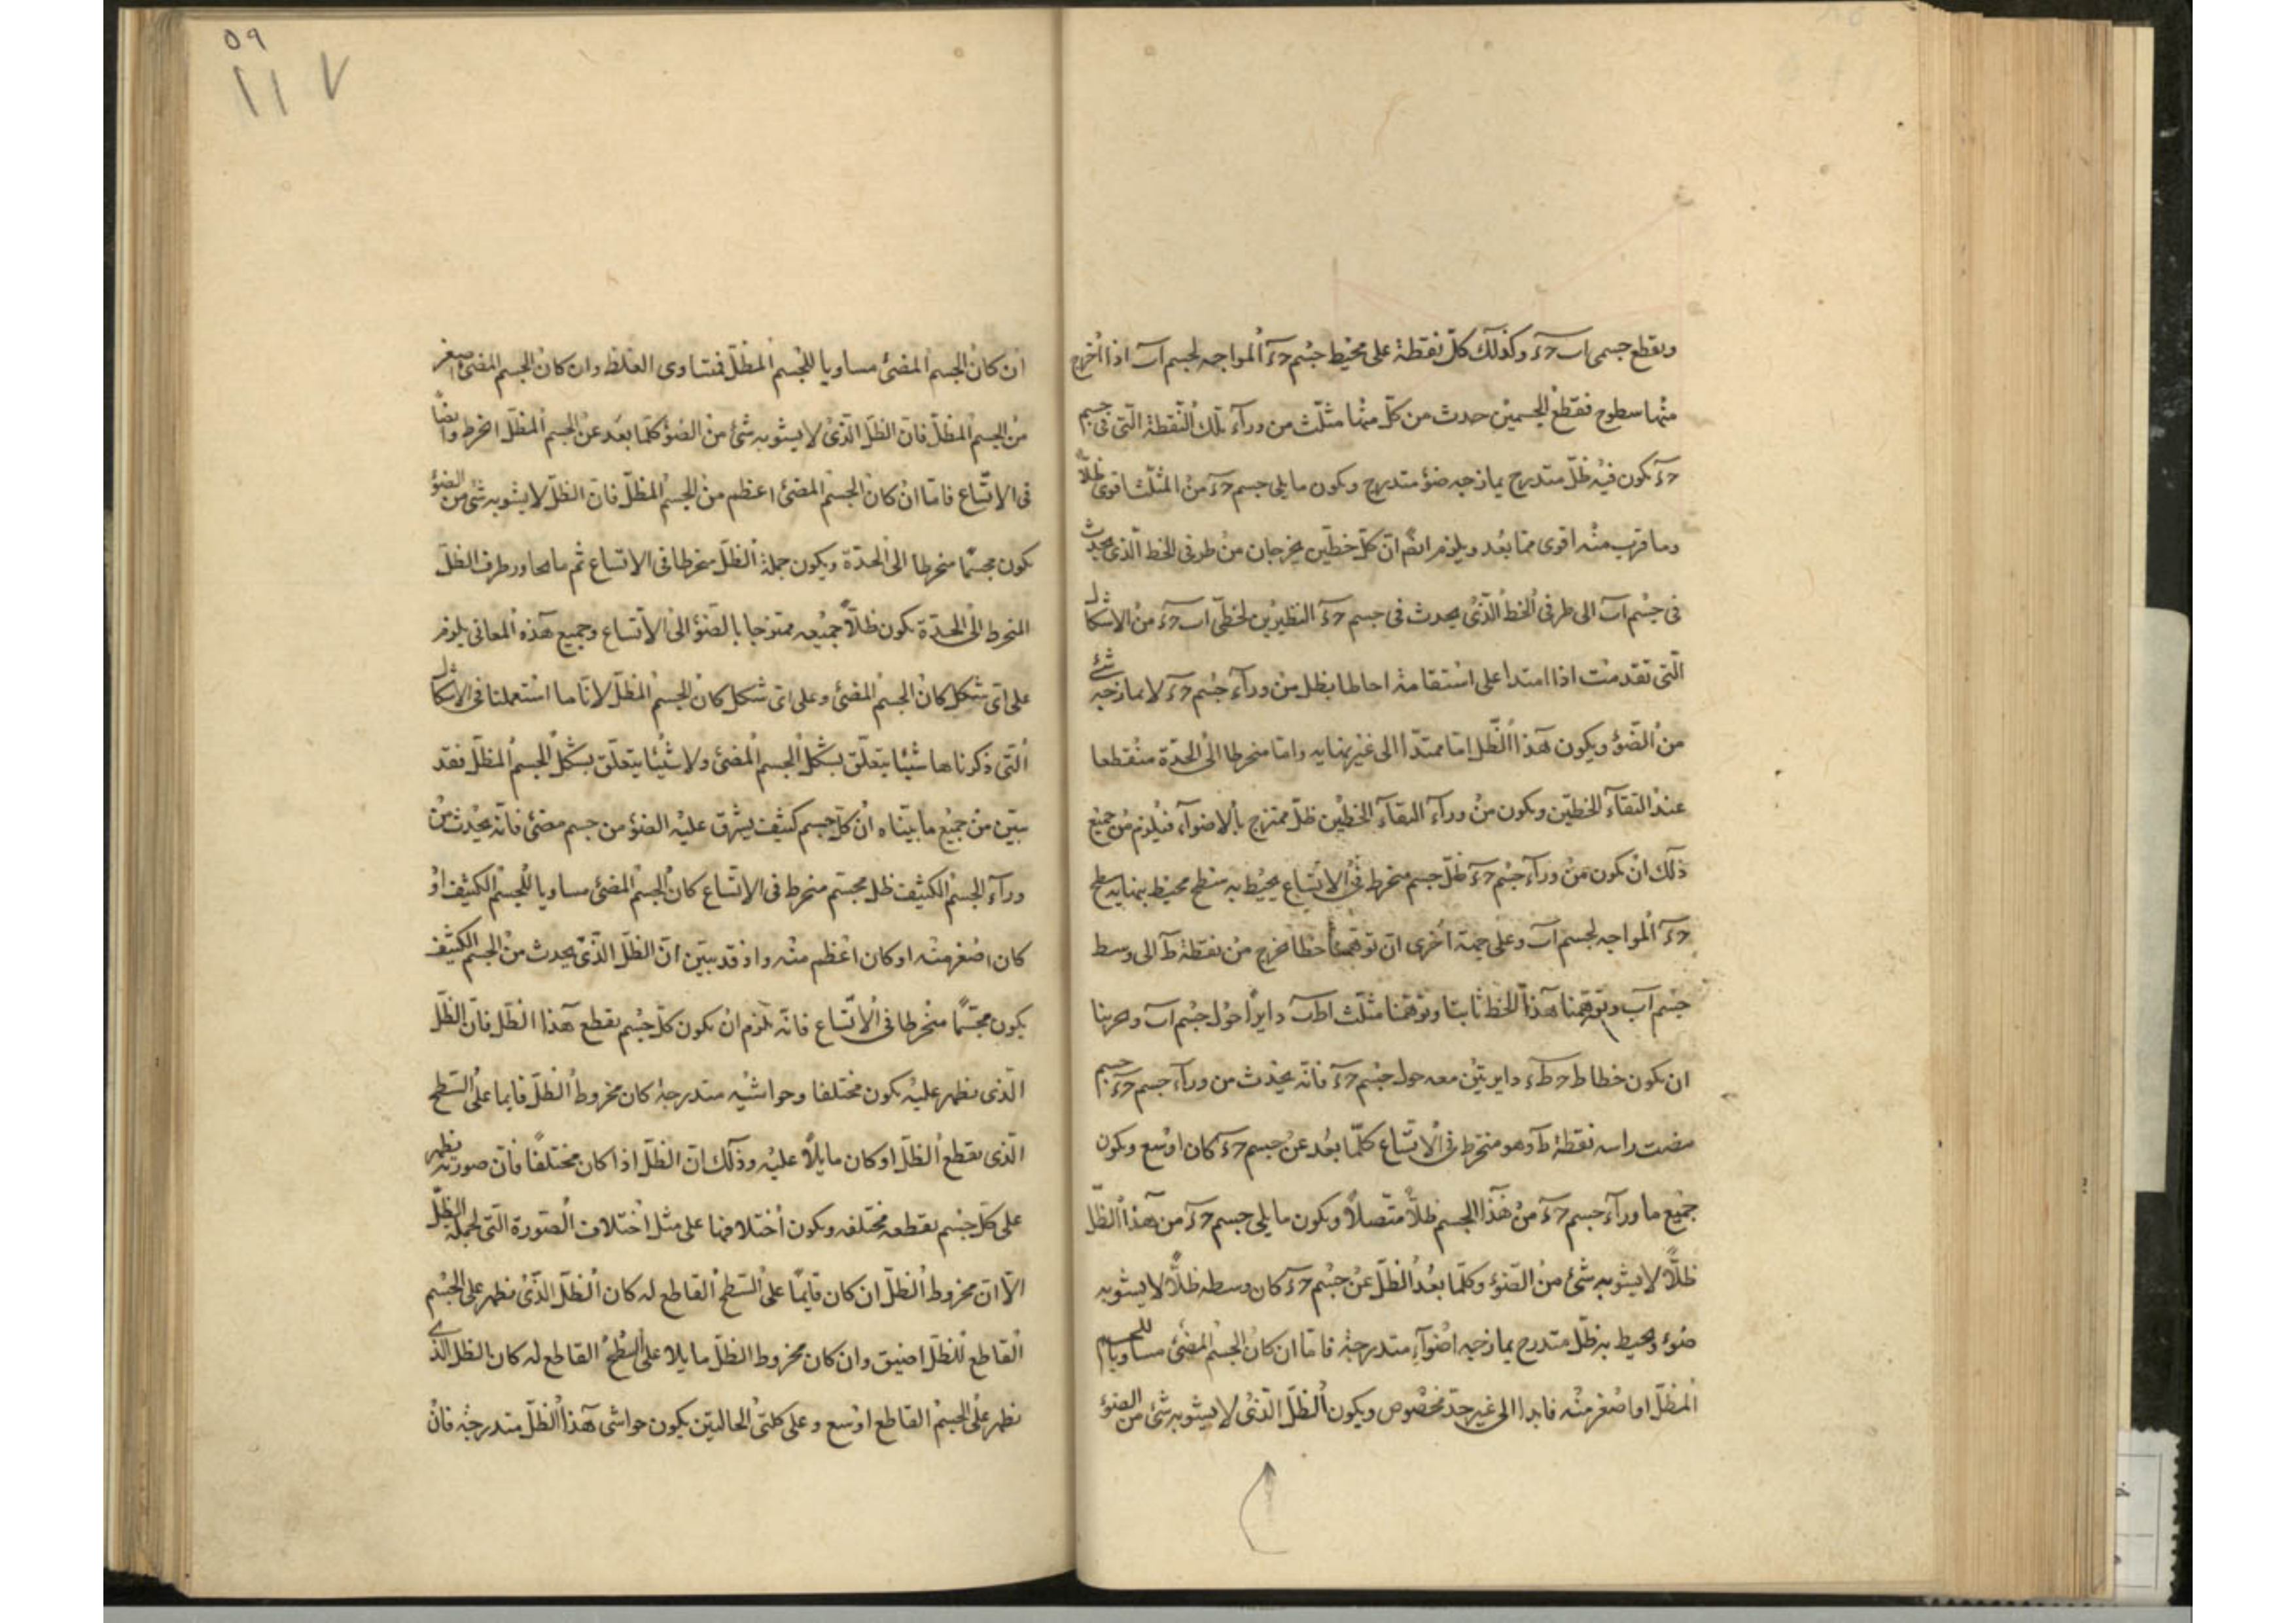 ونقطع جسمى اب حء وكذلك كل نقطة على محيط جسم حء المواجه لجسم اب اذا اخرج
منها سطوح فقطع الجسمين حدث من كل منها مثلث من ورآء تلك النقطة التى فى جسم
حء يكون فيه ظل متدرج يمازجه ضوء متدرج ويكون ما يلى جسم حء من المثلث اقوى ظلا
وما قرب منه اقوى مما بعد ويلزم ايضا ان كل خطين يخرجان من طرفى الخط الذى يحدث
فى جسم اب الى طرفى الخط الذى يحدث فى جسم حء النظيرين لخطى اب حء من الاشكال
التى تقدمت اذا امتدا على استقامة احاطا بظل من ورآء جسم حء لا يمازجه شئ
من الضوء ويكون هذا الظل اما ممتدا الى غير نهايه واما منخرطا الى الحدة منقطعا
عند التقآء الخطين ويكون من ورآء التقآء الخطين ظل ممتزج بالاضوآء فيلزم من جميع
ذلك ان يكون من ورآء جسم حء ظل جسم منخرط فى الاتساع يحيط به سطح محيط بنهايه سطح
حء المواجه لجسم اب وعلى جهة اخرى ان توهمنا خطا يخرج من نقطة ط الى وسط
جسم اب وتوهمنا هذا الخط ثابتا وتوهمنا مثلث اطب دايرا حول جسم اب وحرينا
ان يكون خطا طح طء دايرتين معه حول جسم حء فانه يحدث من ورآء جسم حء جسم
مضت راسه نقطة ط وهو منخرط فى الاتساع كلما بعد عن جسم حء كان اوسع ويكون
جميع ما ورآء جسم حء من هذا الجسم ظلا متصلا ويكون ما يلى جسم حء من هذا الظل
ظلا لا يشوبه شئ من الضوء وكلما بعد الظل عن جسم حء كان وسطه ظلا لا يشوبه
ضوء ويحيط به ظل متدرج يمازجه اضوآء متدرجة فاما ان كان الجسم المضئ مساويا للجسم
المظل او اصغر منه فابدا الى غير حد مخصوص ويكون الظل الذى لا يشوبه شئ من الضوء
٥٩
١١٧
ان كان الجسم المضئ مساويا للجسم المظل فمتساوى الغلظ وان كان الجسم المضئ اصغر
من الجسم المظل فان الظل الذى لا يشوبه شئ من الضوء كلما بعد عن الجسم المظل انخرط وايضا
فى الاتساع فاما ان كان الجسم المضئ اعظم من الجسم المظل فان الظل لا يشوبه شئ من الضوء
يكون مجسما منخرطا الى الحدة ويكون جملة الظل منخرطا فى الاتساع ثم ما يجاور طرف الظل
المنخرط الى الحدة يكون ظلا جميعه ممتزجا بالضوء الى الاتساع وجميع هذه المعانى يلزم
على اى شكل كان الجسم المضئ وعلى اى شكل كان الجسم المظل لانا ما استعملنا فى الاشكال
التى ذكرناها شيئا يتعلق بشكل الجسم المضئ ولا شيئا يتعلق بشكل الجسم المظل فقد
تبين من جميع ما بيناه ان كل جسم كثيف يشرق عليه الضوء من جسم مضئ فانه يحدث من
ورآء الجسم الكثيف ظل مجسم منخرط فى الاتساع كان الجسم المضئ مساويا للجسم الكثيف او
كان اصغر منه او كان اعظم منه واذ قد تبين ان الظل الذى يحدث من الجسم الكثيف
يكون مجسما منخرطا فى الاتساع فانه يلزم ان يكون كل جسم يقطع هذا الظل فان الظل
الذى يظهر عليه يكون مختلفا وحواشيه متدرجة كان مخروط الظل قايما على السطح
الذى يقطع الظل او كان مايلا عليه وذلك ان الظل اذا كان مختلفا فان صورته يظهر
على كل جسم يقطعه مختلفه ويكون اختلافها على مثل اختلاف الصورة التى لجملة الظل
الا ان مخروط الظل ان كان قايما على السطح القاطع له كان الظل الذى يظهر على الجسم
القاطع للظل اضيق وان كان مخروط الظل مايلا على السطح القاطع له كان الظل الذى
يظهر على الجسم القاطع اوسع وعلى كلتى الحالتين يكون حواشى هذا الظل متدرجة فان